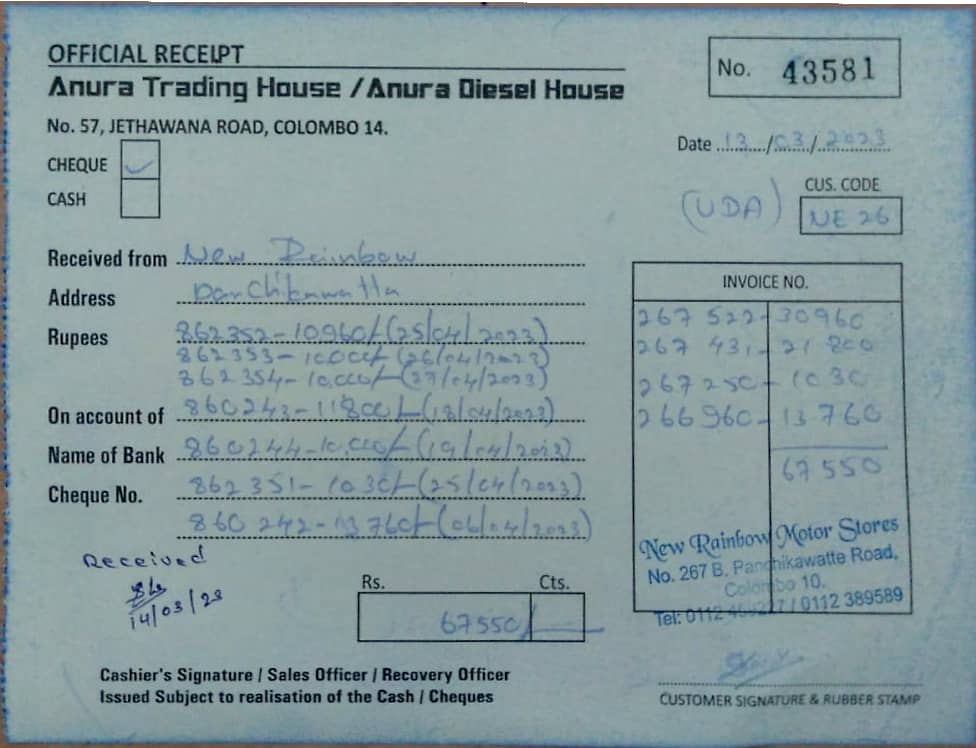 OFFICIAL RECEIPT
Anura Trading House / Anura Diesel House
No. 57, JETHAWANA ROAD, COLOMBO 14.
No. 43581
Date 13/03/2023
CHEQUE ✓
CASH
(UDA)
CUS. CODE
NE 26
Received from New Rainbow
Address Panchikawatta
Rupees 862352-10960/-(25/04/2023)
862353-10,000/-(26/04/2023)
862354-10,000/-(27/04/2023)
On account of 860243-11800/-(18/04/2023)
Name of Bank 860244-10,000/-(19/04/2023)
Cheque No. 862351-1030/-(25/04/2023)
860242-13760/-(06/04/2023)
INVOICE NO.
267 522-30960
267 431-21 800
267 250-1030
266 960-13 760
67 550
New Rainbow Motor Stores
No. 267 B, Panchikawatte Road,
Colombo 10.
Tel: 0112 / 0112 389589
Received
14/03/23
Rs. Cts.
67550/
Cashier's Signature / Sales Officer / Recovery Officer
Issued Subject to realisation of the Cash / Cheques
CUSTOMER SIGNATURE & RUBBER STAMP